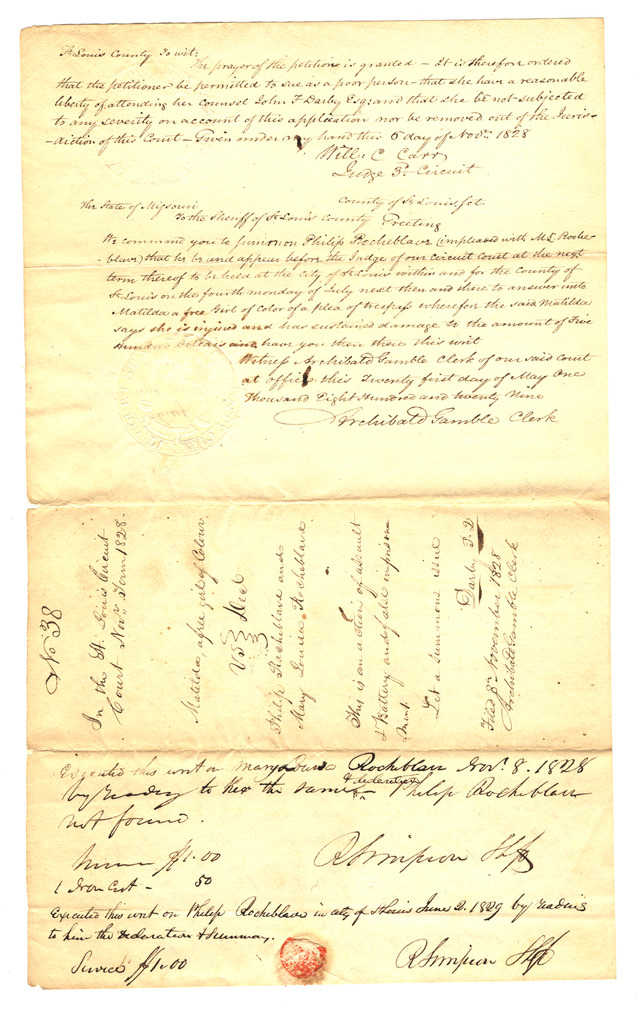 St Louis County To wit:
The prayer of the petition is granted – It is therefore ordered
that the petitioner be permitted to sue as a poor person – that she have a reasonable
liberty of attending her counsel John F Darby Esq: and that she be not subjected
to any severity on account of this application nor be removed out of the Juris-
diction of this Court – Given under my hand this 6 day of Novr. 1828
Will: C Carr
Judge 3d. Circuit
County of St Louis Sct.
The State of Missouri
To the Sheriff of St Louis County Greeting
We command you to summon Philip Rocheblave (impleaded with M L Roche-
blave) that he be and appear before the Judge of our circuit Court at the next
term thereof to be held at the City of St Louis within and for the County of
St Louis on the fourth monday of July next then and there to answer unto
Matilda a free Girl of Color of a plea of trespass wherefore the said Matilda
says she is injured and has sustained damage to the amount of Five
Hundred Dollars and have you then there this writ
Witness Archibald Gamble Clerk of our said Court
at office this Twenty first day of May One
Thousand Eight Hundred and twenty Nine
Archibald Gamble Clerk
No. 38
In the St. Louis Circuit
Court Novr. Term 1828.
Matilda, a free girl of Colour
Vs Decl
Philip Rocheblave and
Mary Louisa Rocheblave
This is an action of assault
& Battery and false imprison-
ment
Let a summons issue
Darby P.Q
Filed 8th November 1828
Archibald Gamble Clerk
Executed this writ on Mary Louisa Rocheblave Nov. 8. 1828
& declaration
by reading to her the same Philip Rocheblave
not found.
$1.00
R Simpson Shff
1 Non Est – 50
Executed this writ on Philip Rocheblave in city of St Louis June 2. 1829 by reading
to him the Declaration & Summons.
Service $1.00
R Simpson Shff